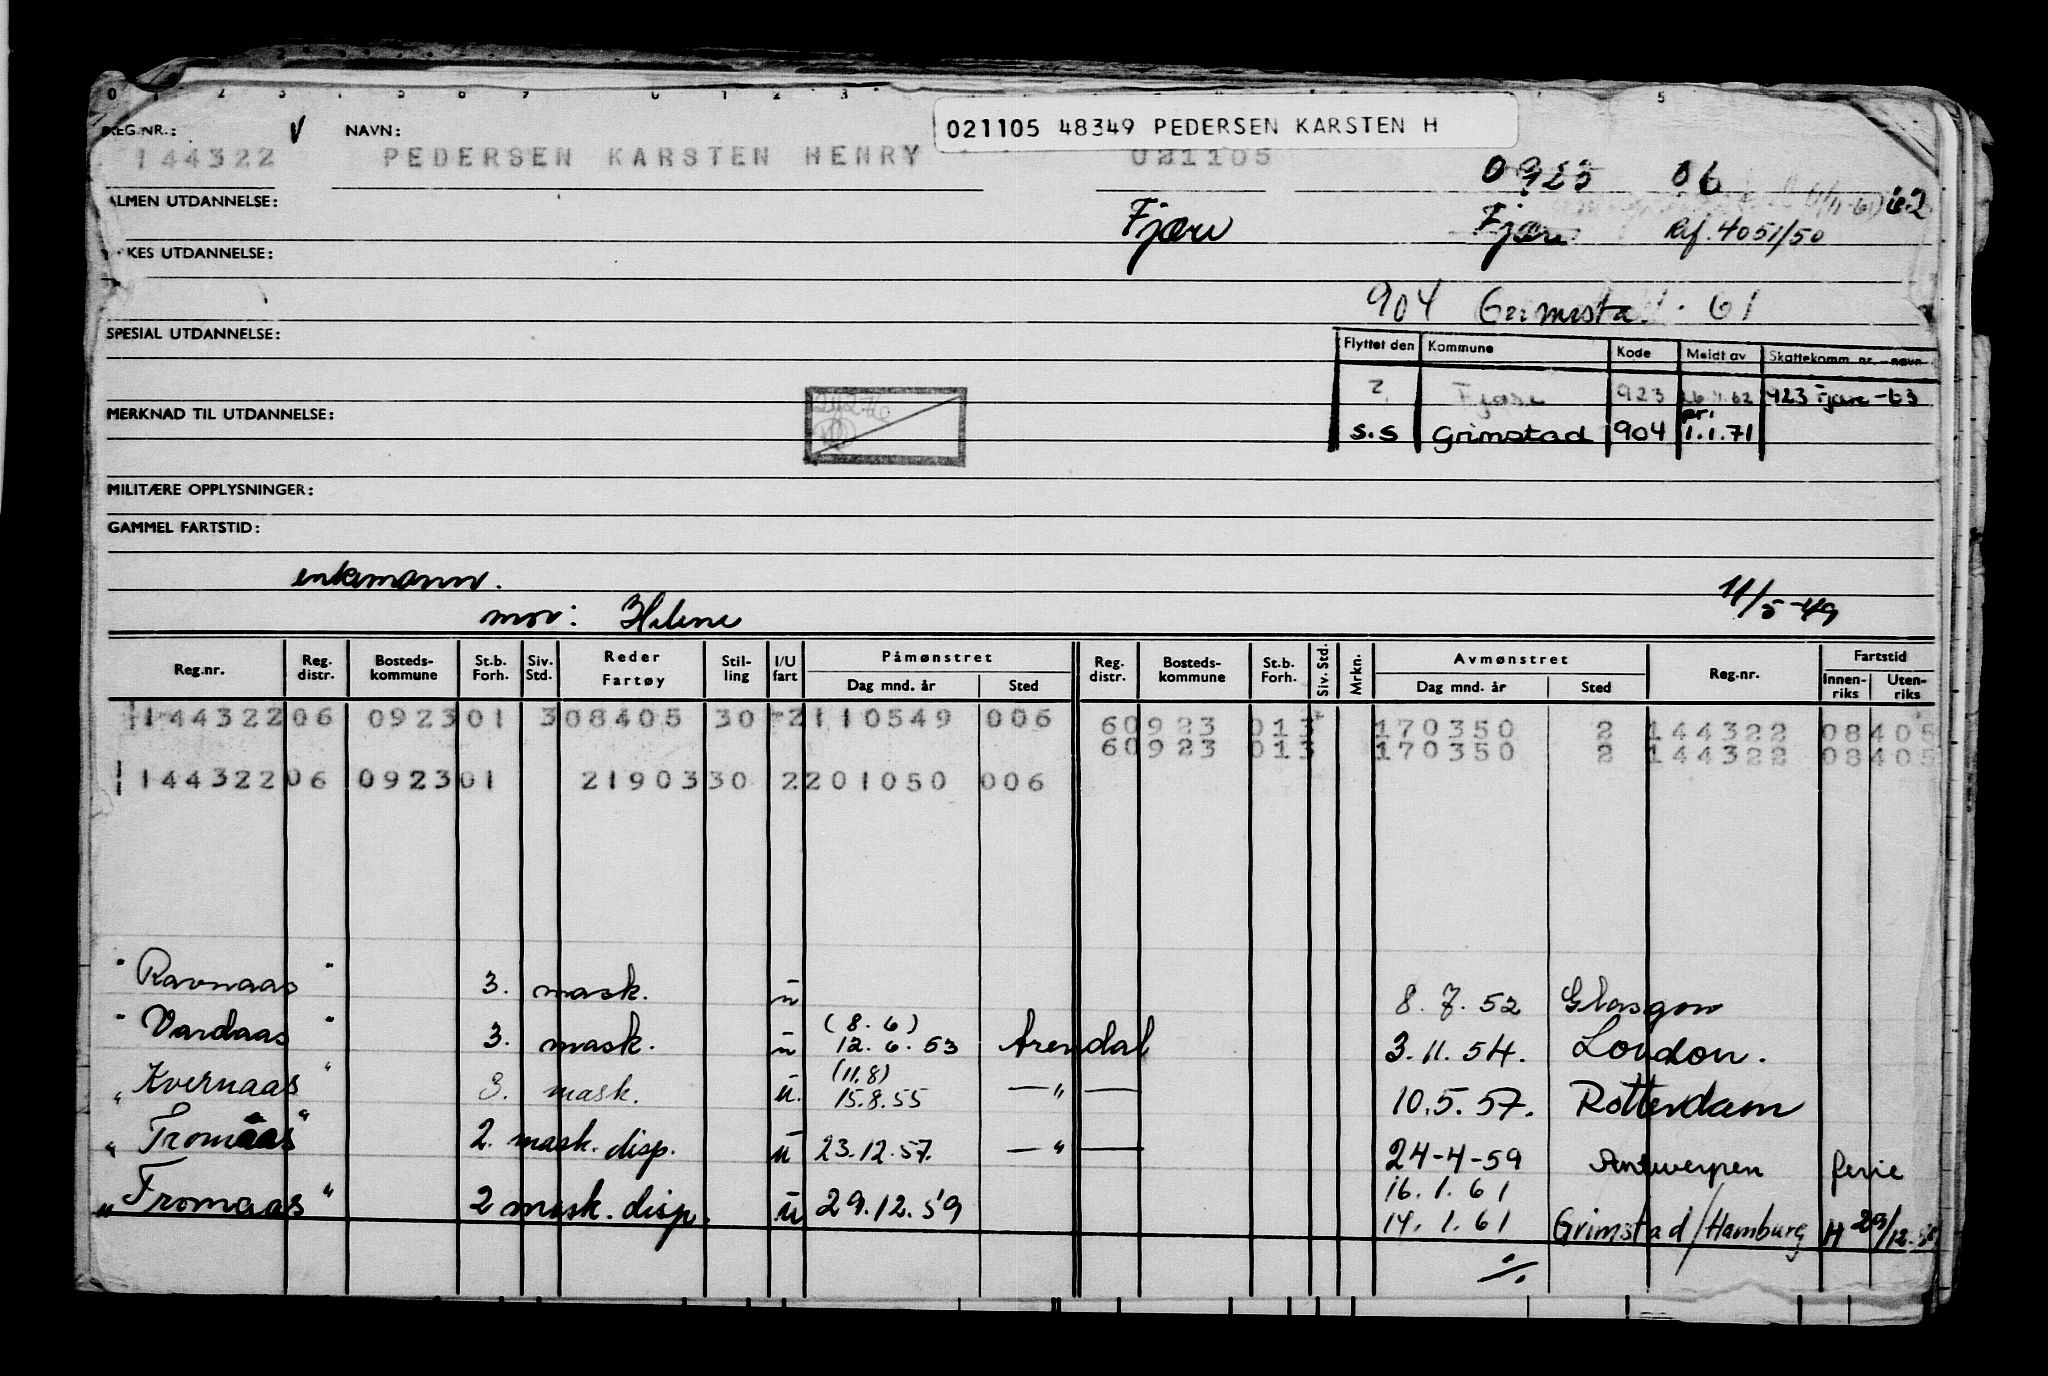 021105 48349 PEDERSEN KARSTEN H
REG.NR.: NAVN:
144322 PEDERSEN KARSTEN HENRY 021105
0923 06 62
ALMEN UTDANNELSE:
Fjære Fjære Ref. 4051/50
KES UTDANNELSE:
904 Grimstad - 61
SPESIAL UTDANNELSE:
Flyttet den Kommune Kode Meldt av Skattekomm. nr. navn
? Fjære 923 26.11.62 923 Fjære -63
MERKNAD TIL UTDANNELSE:
pr.
s.s Grimstad 904 1.1.71
MILITÆRE OPPLYSNINGER:
GAMMEL FARTSTID:
enkemann.
mor: Helene 11/5-49
Reg.nr. Reg. distr. Bosteds-kommune St.b. Forh. Siv. Std. Reder Fartøy Stil-ling I/U fart Påmønstret Dag mnd. år Sted Reg. distr. Bosteds-kommune St.b. Forh. Siv. Std. Mrkn. Avmønstret Dag mnd. år Sted Reg.nr. Fartstid Innen-riks Uten-riks
144322 06 0923 01 3 08405 30 2 110549 006 60923 013 170350 2 144322 08405
60923 013 170350 2 144322 08405
144322 06 0923 01 21903 30 2 201050 006
"Ravnaas" 3. mask. u 8.7.52 Glasgow
"Vardaas" 3. mask. u (8.6) 12.6.53 Arendal 3.11.54. London.
"Kvernaas" 3. mask. u. (11.8) 15.8.55 — " — 10.5.57. Rotterdam
"Tromaas" 2. mask. disp. u 23.12.57. — " — 24-4-59 Antwerpen ferie
16.1.61
"Fromaas" 2 mask. disp. u 29.12.59 14.1.61 Grimstad/Hamburg H 29/12.
%.